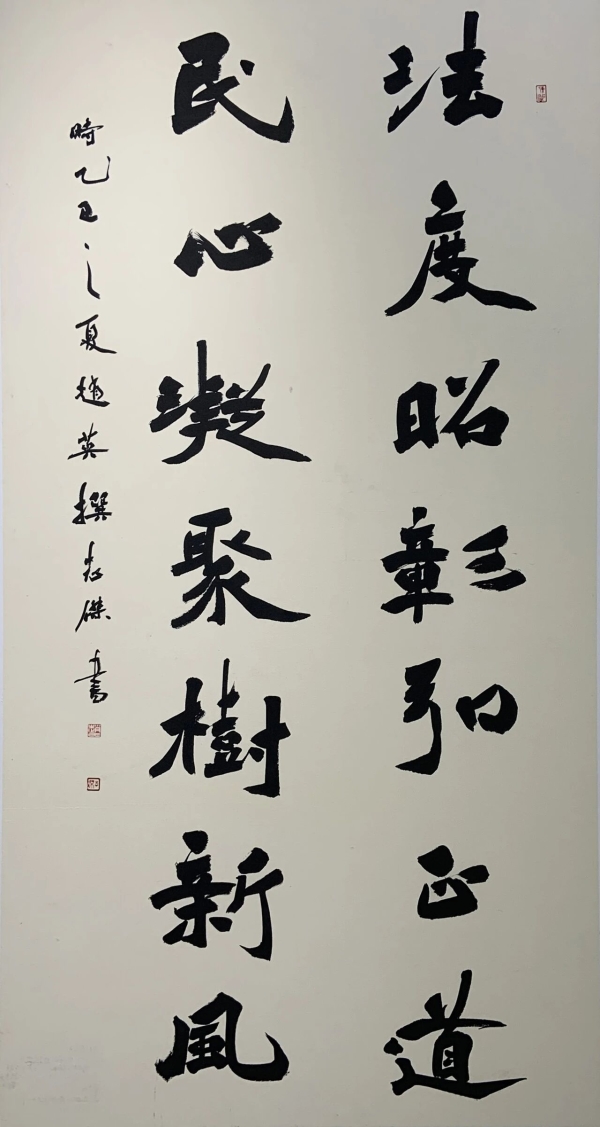 法度昭彰弘正道
民心凝聚樹新風
時乙巳之夏趙英撰志傑書